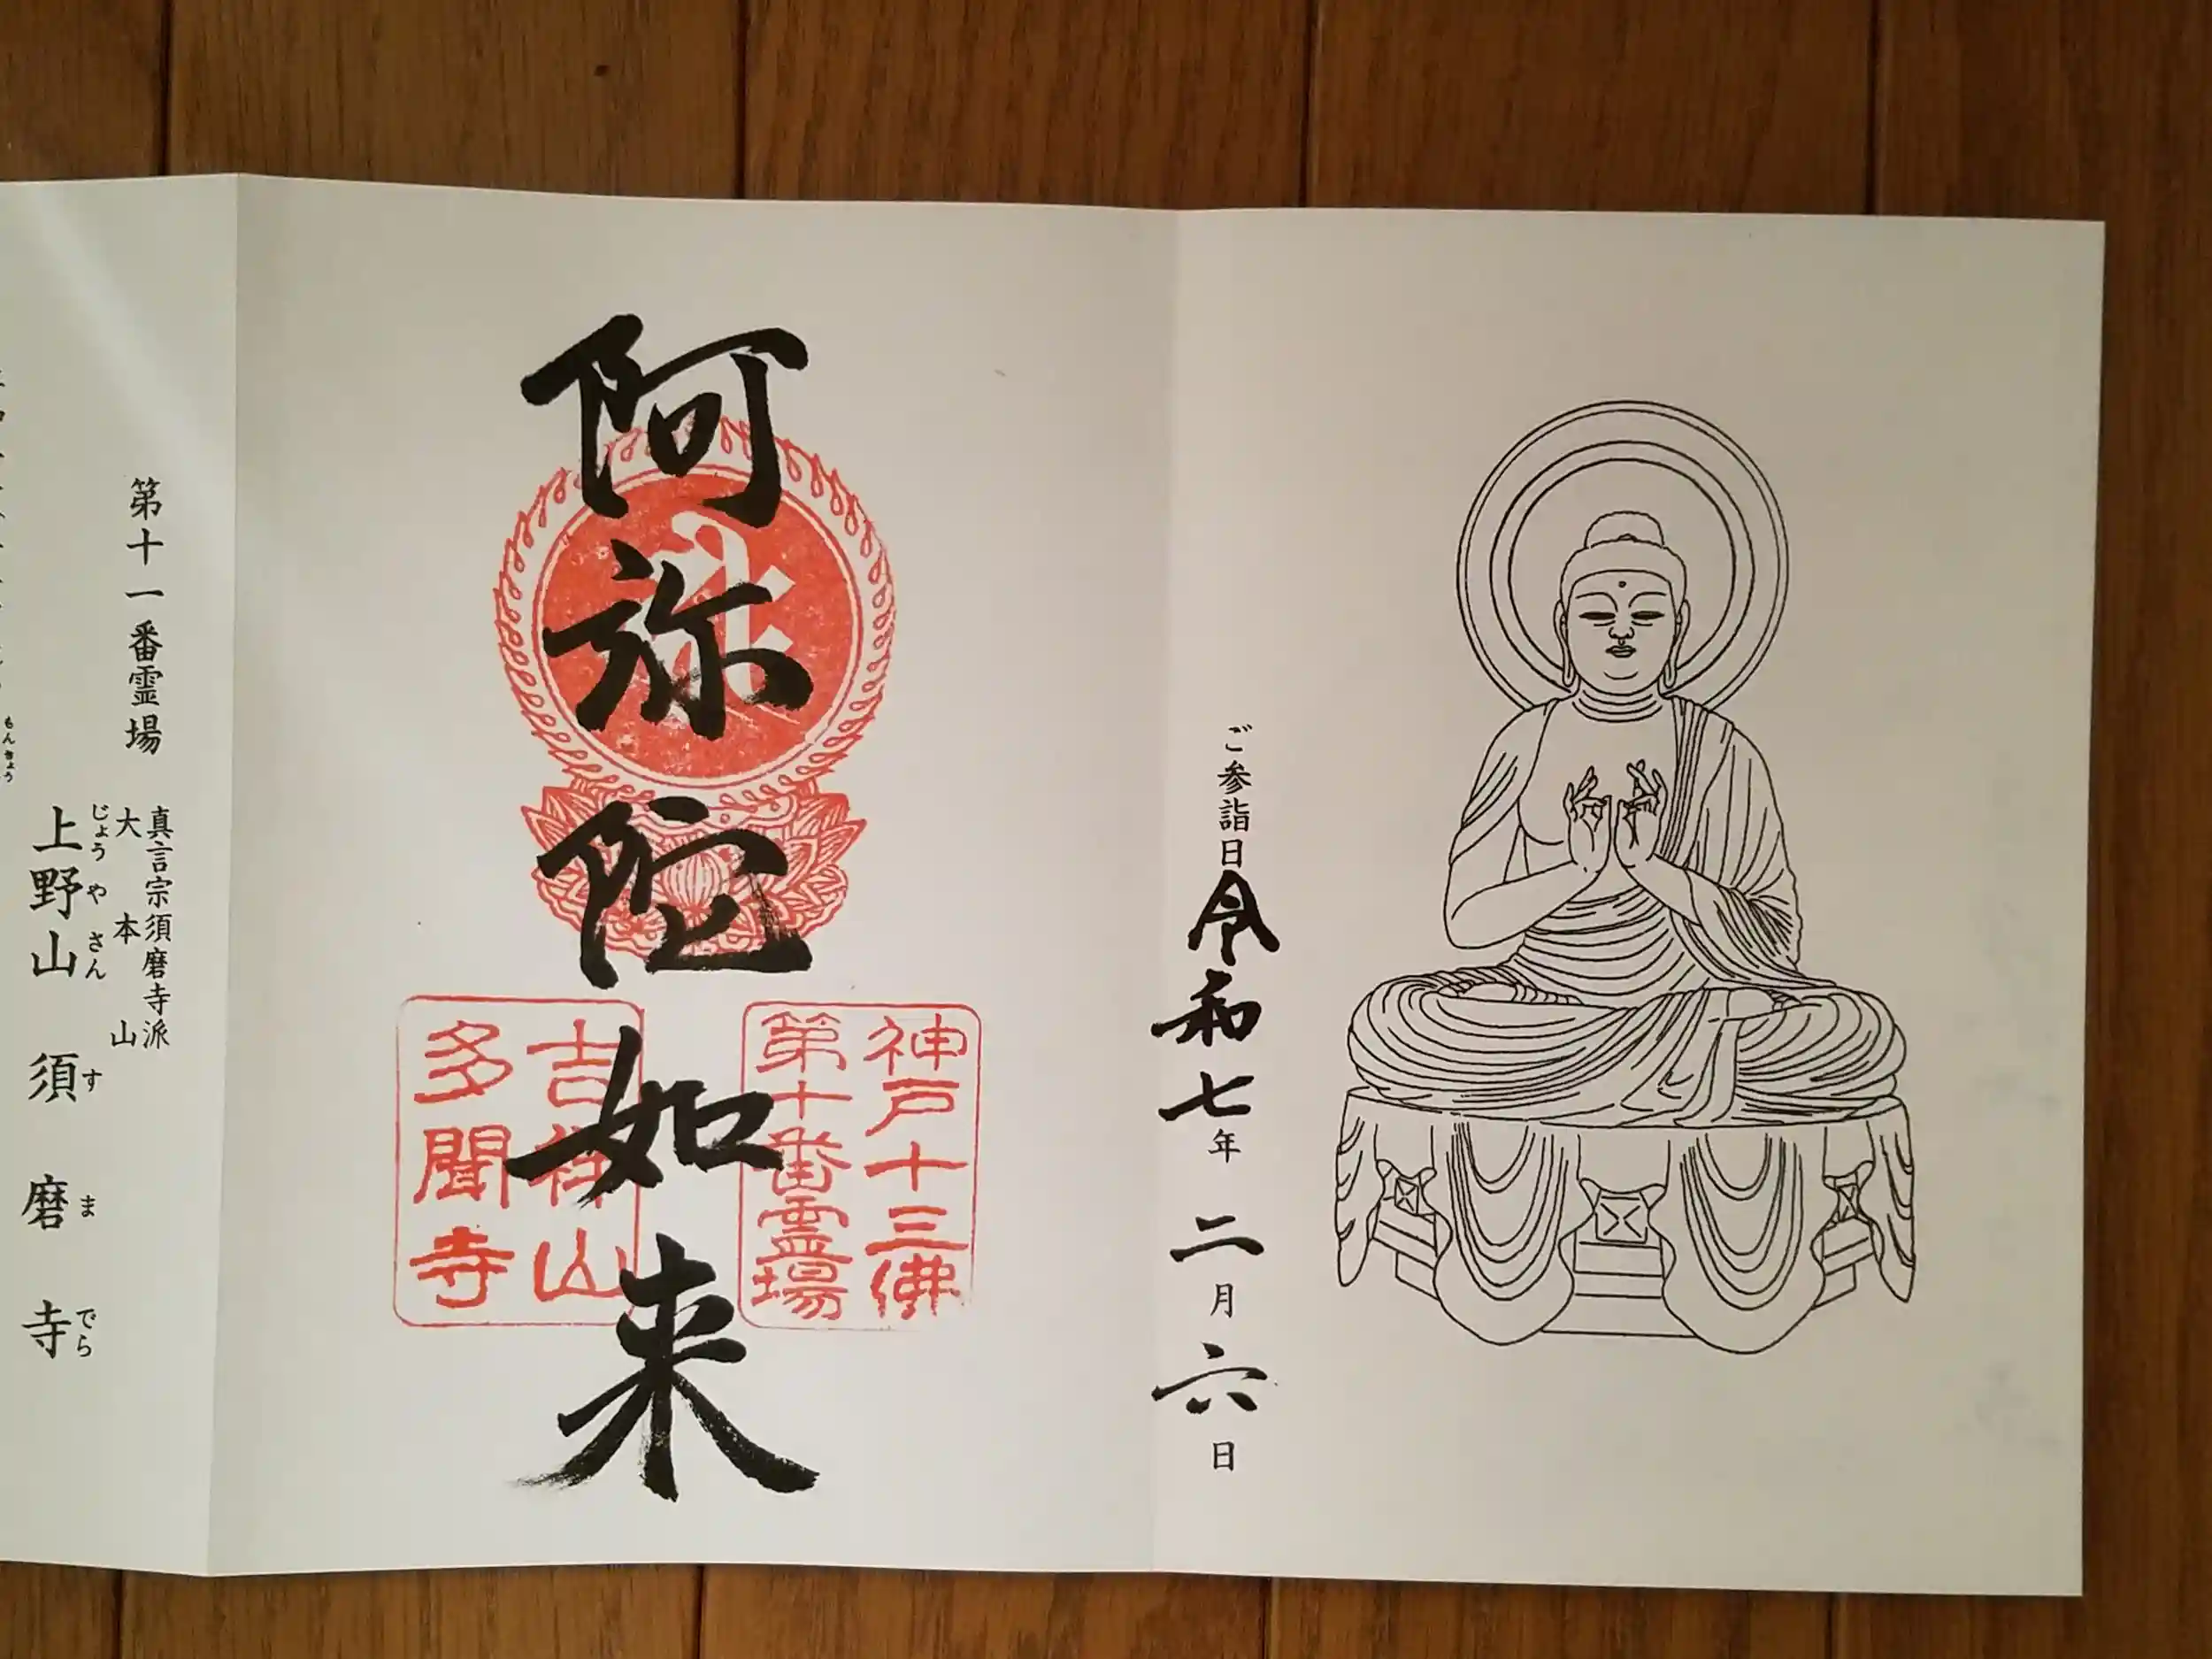 ご参詣日令和七年二月六日
阿弥陀如来
神戸十三佛
第十番霊場
吉祥山
多聞寺
第十一番霊場
真言宗須磨寺派
大本山
じょうやさん すまでら
上野山 須磨寺
もんきょう